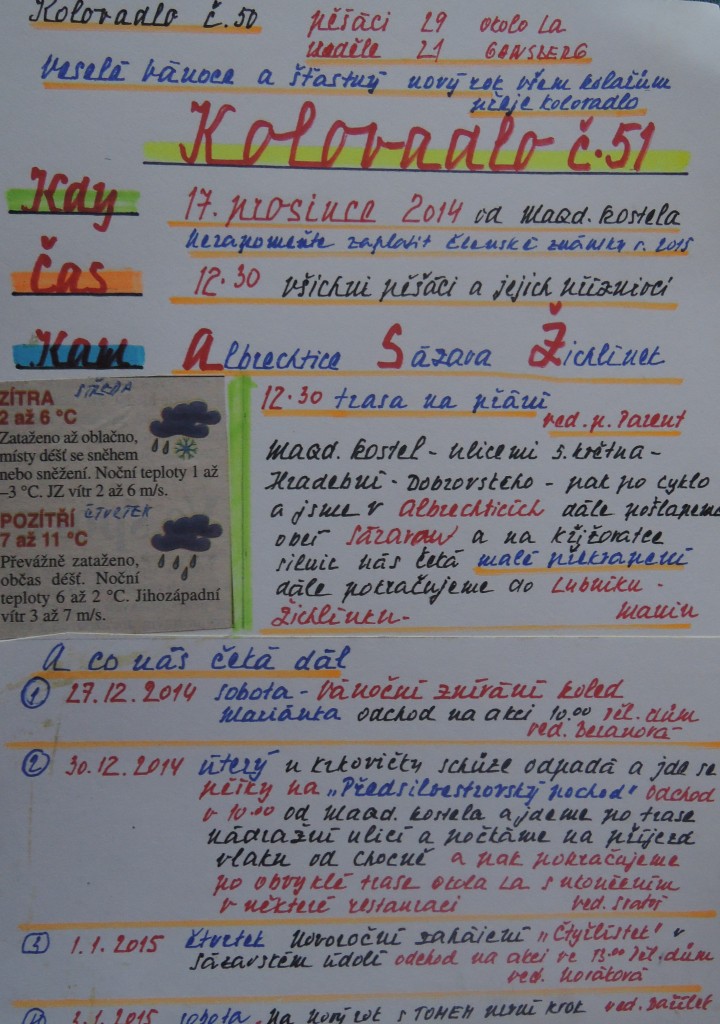 Kolovadlo č.50 pěšáci 29 okolo LA
neděle 21 GANSBERG
veselé vánoce a šťastný nový rok všem kolařům
přeje kolovadlo
Kolovadlo č.51
Kdy 17. prosince 2014 od Magd. kostela
Nezapomeňte zaplatit členské známky r. 2015
Čas 12.30 všichni pěšáci a jejich příznivci
Kam Albrechtice Sázava Žichlínek
ZÍTRA STŘEDA
2 až 6 °C
Zataženo až oblačno,
místy déšť se sněhem
nebo sněžení. Noční teploty 1 až
–3 °C. JZ vítr 2 až 6 m/s.
POZÍTŘÍ ČTVRTEK
7 až 11 °C
Převážně zataženo,
občas déšť. Noční
teploty 6 až 2 °C. Jihozápadní
vítr 3 až 7 m/s.
12.30 trasa na přání
ved. p. Parent
Magd. kostel - ulicemi 5. května -
Hradební - Dobrovského - pak po cyklo
a jsme v Albrechticích dále pošlapeme
obcí Sázavou a na křižovatce
silnic nás čeká malé překvapení
dále pokračujeme do Lubníku -
Žichlínku - Manin
A co nás čeká dál
1 27.12.2014 sobota - vánoční zpívání koled
Mariánka odchod na akci 10.00 těl. dům
ved. Beranová
2 30.12.2014 úterý u Krkovičky schůze odpadá a jde se
pěšky na „Předsilvestrovský pochod" odchod
v 10.00 od Magd. kostela a jdeme po trase
nádražní ulicí a počkáme na příjezd
vlaku od Chocně a pak pokračujeme
po obvyklé trase okolo LA s ukončením
v některé restauraci ved.
3 1.1.2015 čtvrtek Novoroční zahájení „Čtyřlístek" v
Sázavském údolí odchod na akci ve 13.00 těl. dům
ved. Horáková
4 3.1.2015 sobota Na Nový rok s TOMEM první krok ved.